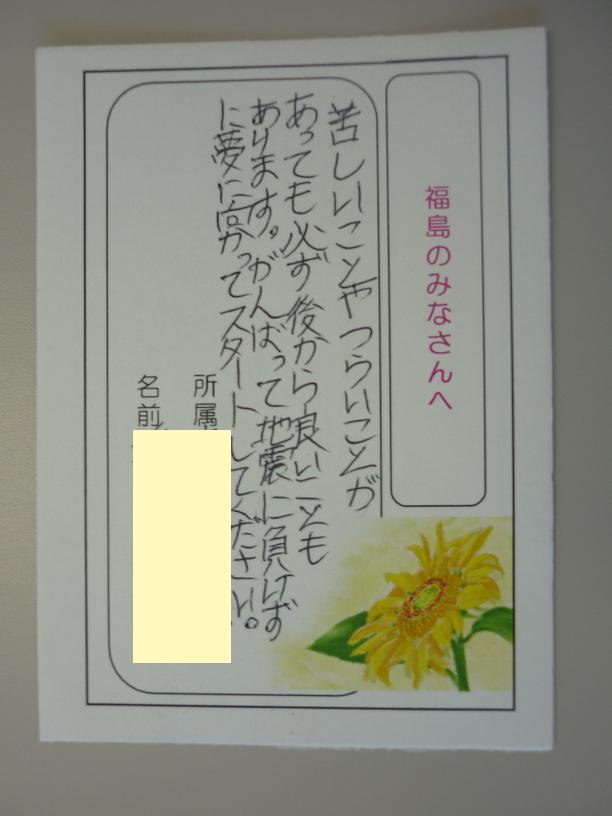 福島のみなさんへ
苦しいことやつらいことが
あっても必ず後から良いことも
あります。がんばって地震に負けず
に夢に向かってスタートしてください。
所属
名前